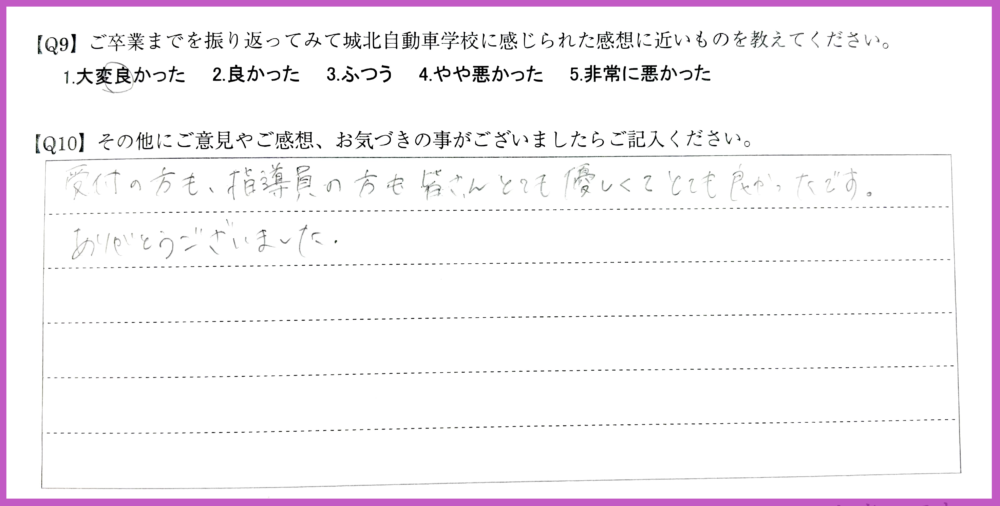 【Q9】ご卒業までを振り返ってみて城北自動車学校に感じられた感想に近いものを教えてください。
1.大変良かった 2.良かった 3.ふつう 4.やや悪かった 5.非常に悪かった
【Q10】その他にご意見やご感想、お気づきの事がございましたらご記入ください。
受付の方も、指導員の方も皆さんとても優しくてとても良かったです。
ありがとうございました.